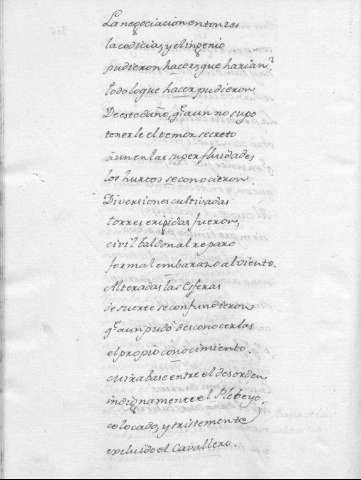 La negociacion entonzes
la codicia, y el ingenio
pudieron hacer, que harian?
todo loque hacer pudieron,
De este daño, q.e aun no supo
tenerle el temor secreto
aun en las superfluidades
los hurtos se conocieron.
Diversiones cultivadas
torres erigidas fueron,
civil baldon al reparo
formal embarazo al viento.
Alteradas las Esferas
de suerte se confundieron,
q.e aun pudo desconocerlas
el propio conocimiento.
mirabase entre el desorden
indignamente el Plebeyo,
colocado, y tristemente
excluido el Cavallero.